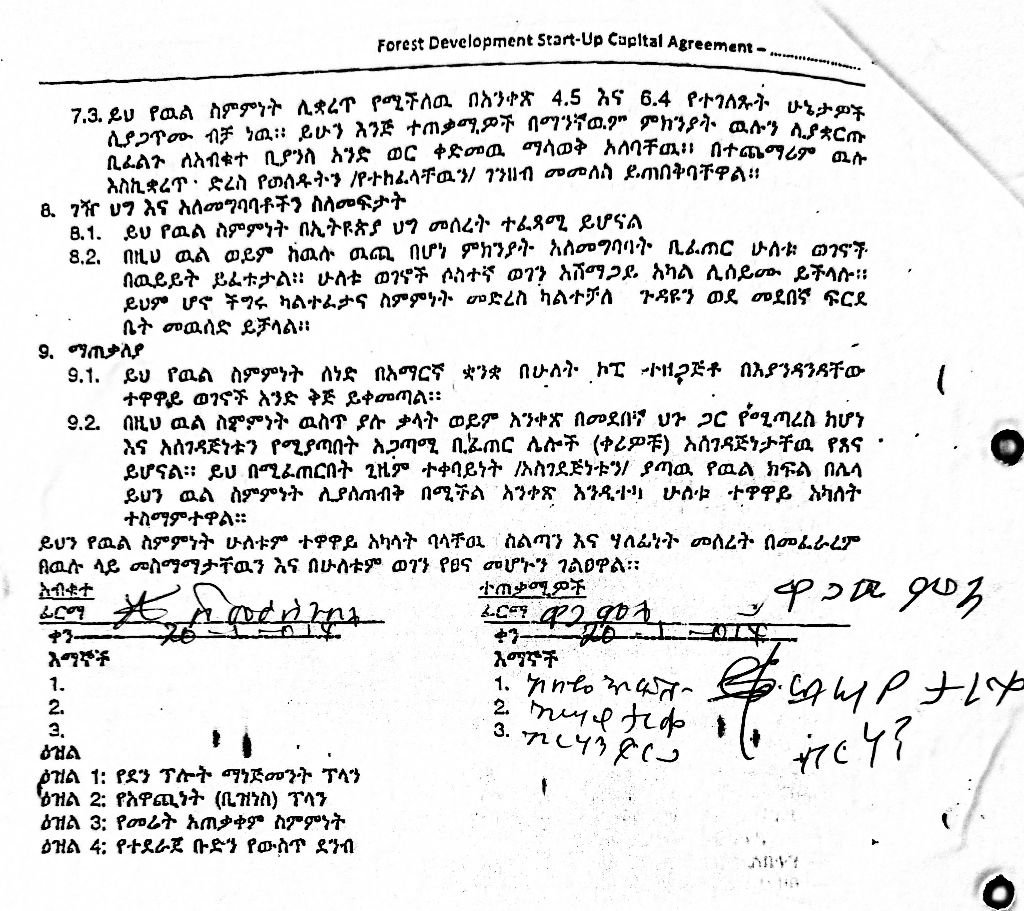 Forest Development Start-Up Capital Agreement – ........................
7.3. ይህ የዉል ስምምነት ሊቋረጥ የሚችለዉ በአንቀጽ 4.5 እና 6.4 የተገለጹት ሁኔታዎች
ሲያጋጥሙ ብቻ ነዉ፡፡ ይሁን እንጅ ተጠቃሚዎች በማንኛዉም ምክንያት ዉሉን ሊያቋርጡ
ቢፈልጉ ለአብቁተ ቢያንስ አንድ ወር ቀድመዉ ማሳወቅ አለባቸዉ፡፡ በተጨማሪም ዉሉ
እስኪቋረጥ ድረስ የወሰዱትን /የተከፈላቸዉን/ ገንዘብ መመለስ ይጠበቅባቸዋል፡፡
8. ገዥ ህግ እና አለመግባባቶችን ስለመፍታት
8.1. ይህ የዉል ስምምነት በኢትዩጵያ ህግ መሰረት ተፈጻሚ ይሆናል
8.2. በዚህ ዉል ወይም ከዉሉ ዉጪ በሆነ ምክንያት አለመግባባት ቢፈጠር ሁለቱ ወገኖች
በዉይይት ይፈቱታል፡፡ ሁለቱ ወገኖች ሶስተኛ ወገን አሸማጋይ አካል ሊሰይሙ ይችላሉ፡፡
ይህም ሆኖ ችግሩ ካልተፈታና ስምምነት መድረስ ካልተቻለ ጉዳዩን ወደ መደበኛ ፍርድ
ቤት መዉሰድ ይቻላል፡፡
9. ማጠቃለያ
9.1. ይህ የዉል ስምምነት ሰነድ በአማርኛ ቋንቋ በሁለት ኮፒ ተዘጋጅቶ በእያንዳንዳቸው
ተዋዋይ ወገኖች አንድ ቅጅ ይቀመጣል፡፡
9.2. በዚህ ዉል ስምምነት ዉስጥ ያሉ ቃላት ወይም አንቀጽ በመደበኛ ህጉ ጋር የሚጣረስ ከሆነ
እና አስገዳጅነቱን የሚያጣበት አጋጣሚ ቢፈጠር ሌሎች (ቀሪዎቹ) አስገዳጅነታቸዉ የጸና
ይሆናል፡፡ ይህ በሚፈጠርበት ጊዜም ተቀባይነት /አስገደጅነቱን/ ያጣዉ የዉል ክፍል በሌላ
ይህን ዉል ስምምነት ሊያስጠብቅ በሚችል አንቀጽ እንዲተካ ሁለቱ ተዋዋይ አካለት
ተስማምተዋል፡፡
ይህን የዉል ስምምነት ሁለቱም ተዋዋይ አካላት ባላቸዉ ስልጣን እና ሃላፊነት መሰረት በመፈራረም
በዉሉ ላይ መስማማታቸዉን እና በሁለቱም ወገን የፀና መሆኑን ገልፀዋል፡፡
አብቁተ
ፊርማ
ቀን 20 - 1 - 014
እማኞች
1.
2.
3.
ዕዝል
ዕዝል 1: የደን ፕሎት ማነጅመንት ፕላን
ዕዝል 2: የአዋጪነት (ቢዝነስ) ፕላን
ዕዝል 3: የመሬት አጠቃቀም ስምምነት
ዕዝል 4: የተደራጀ ቡድን የውስጥ ደንብ
ተጠቃሚዎች
ፊርማ
ቀን 20 - 1 - 014
እማኞች
1.
2.
3.